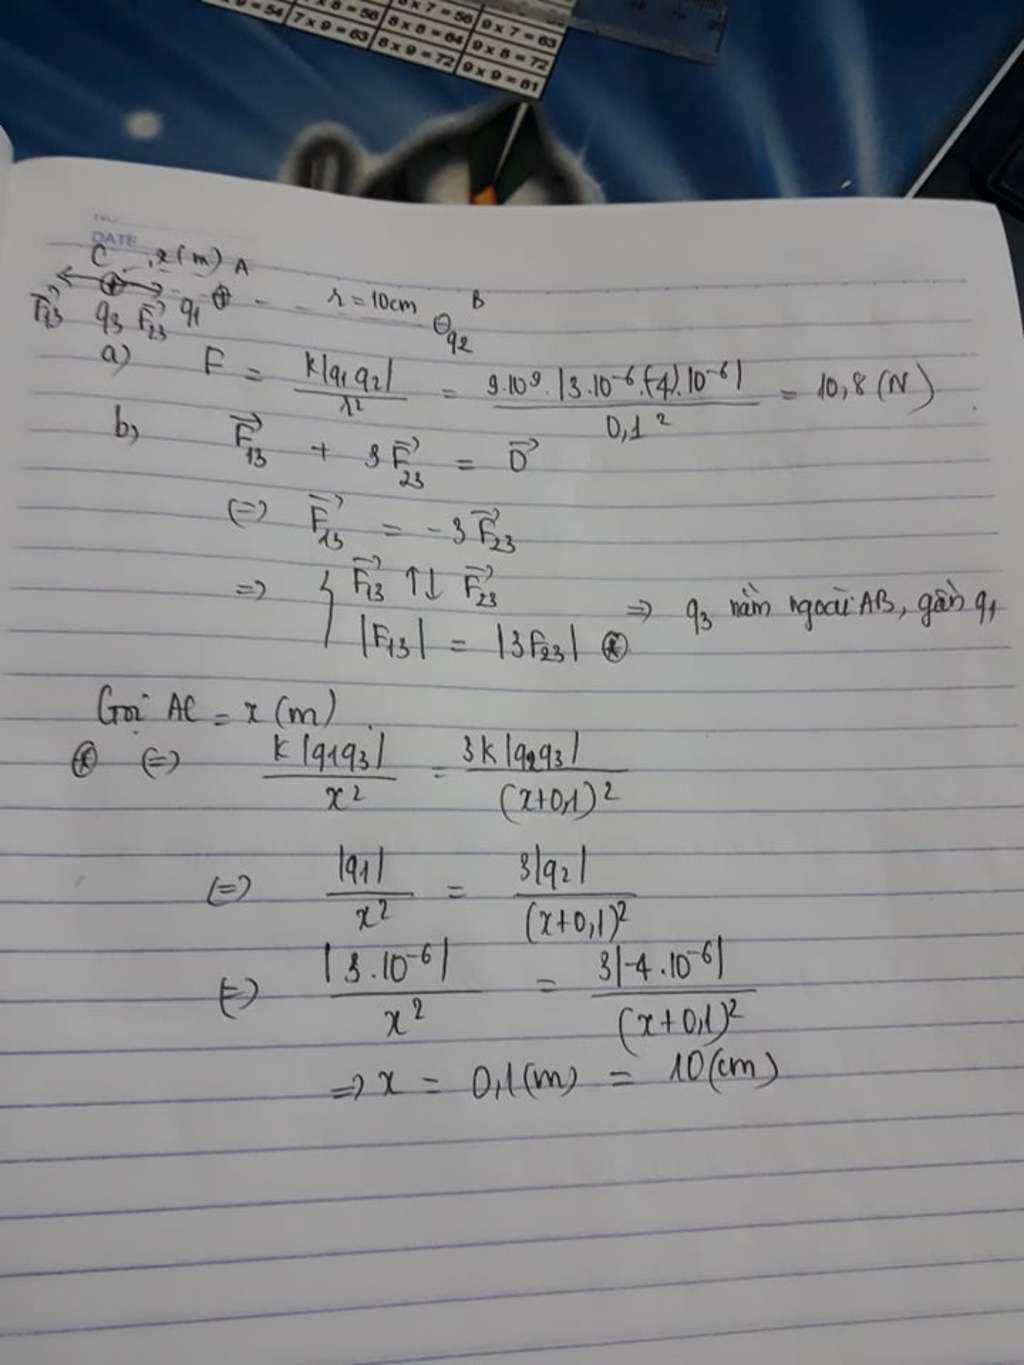 9 = 54 7 x 8 = 56 8 x 7 = 56 9 x 7 = 63
7 x 9 = 63 8 x 8 = 64 9 x 8 = 72
8 x 9 = 72 9 x 9 = 81
DATE
C x(m) A r = 10cm B
F⃗₁₃ q₃ F⃗₂₃ q₁ ⊕ ⊖ q₂
a) F = k|q₁q₂| / r² = 9.10⁹.|3.10⁻⁶.(-4).10⁻⁶| / 0,1² = 10,8 (N)
b, F⃗₁₃ + 3F⃗₂₃ = 0⃗
(=) F⃗₁₃ = -3F⃗₂₃
=> { F⃗₁₃ ↑↓ F⃗₂₃
|F₁₃| = |3F₂₃| ⊛ => q₃ nằm ngoài AB, gần q₁
Gọi AC = x (m)
⊛ (=) k|q₁q₃| / x² = 3k|q₂q₃| / (x+0,1)²
(=) |q₁| / x² = 3|q₂| / (x+0,1)²
(=) |3.10⁻⁶| / x² = 3|-4.10⁻⁶| / (x+0,1)²
=> x = 0,1(m) = 10(cm)